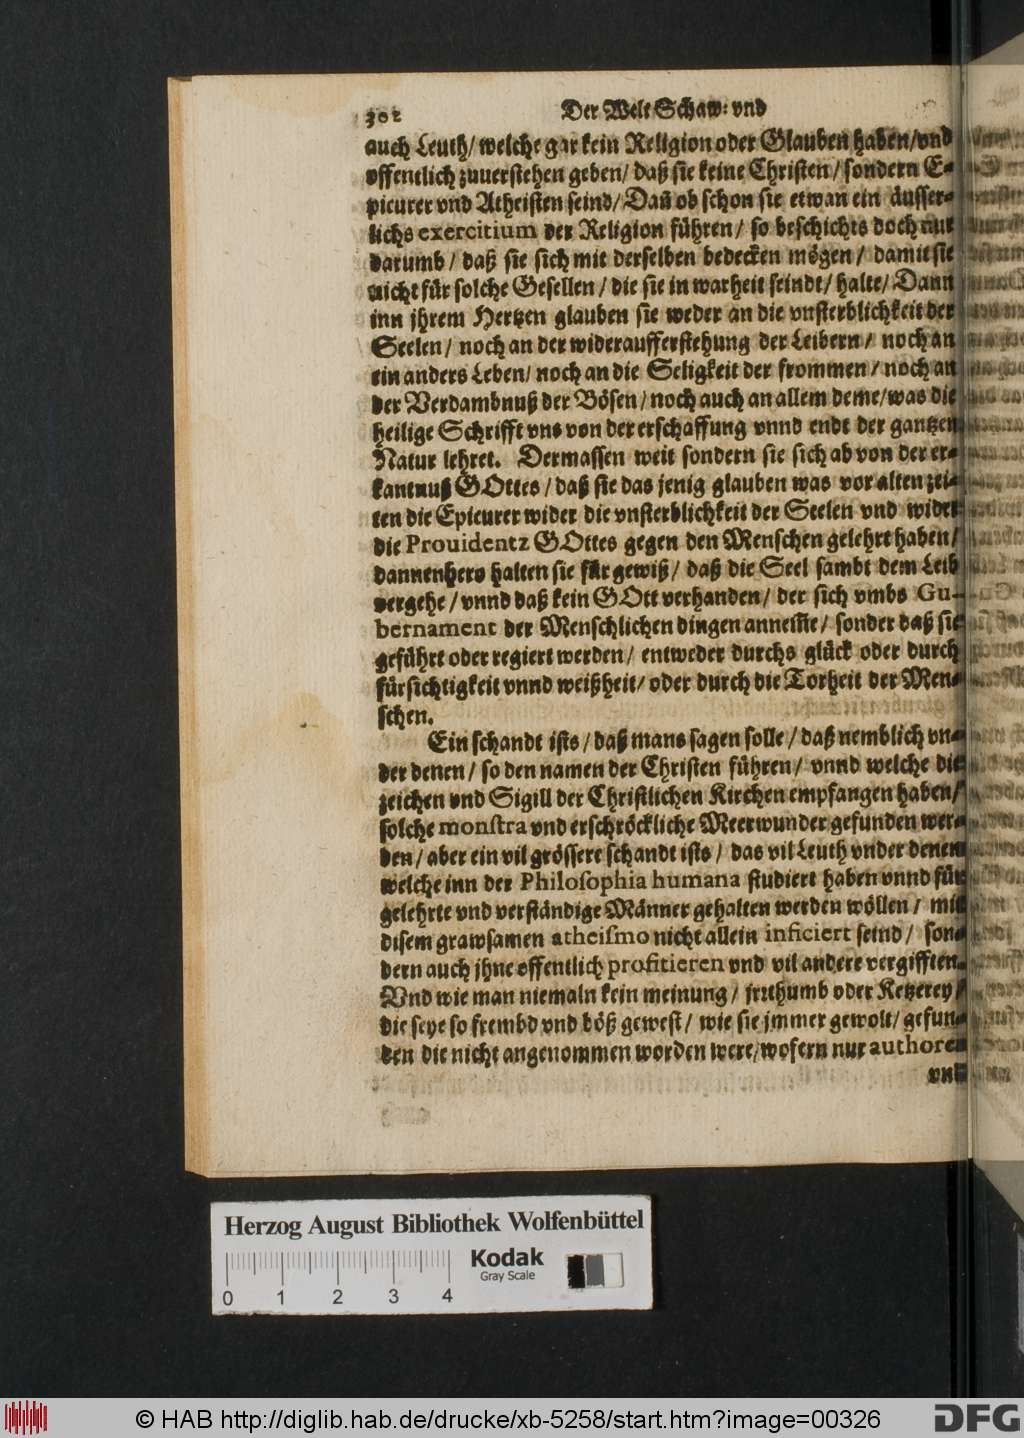 302 Der Welt Schaw: vnd
auch Leuth/ welche gar kein Religion oder Glauben haben/vnd
offentlich zuuerstehen geben/ daß sie keine Christen/ sondern E-
picurer vnd Atheisten seind/ Dañ ob schon sie etwan ein äusser-
lichs exercitium der Religion führen/ so beschichts doch nur
darumb/ daß sie sich mit derselben bedecken mögen/ damit sie
nicht für solche Gesellen/ die sie in warheit seindt/ halte/ Dann
inn jhrem Hertzen glauben sie weder an die vnsterblichkeit der
Seelen/ noch an der wideraufferstehung der Leibern/ noch an
ein anders Leben/ noch an die Seligkeit der frommen/ noch an
der Verdambnuß der Bösen/ noch auch an allem deme/ was die
heilige Schrifft vns von der erschaffung vnnd endt der gantzen
Natur lehret. Dermassen weit sondern sie sich ab von der er-
kantnuß GOttes/ daß sie das jenig glauben was vor alten zei-
ten die Epicurer wider die vnsterblichkeit der Seelen vnd wider
die Prouidentz GOttes gegen den Menschen gelehrt haben/
dannenhero halten sie für gewiß/ daß die Seel sambt dem Leib
vergehe/ vnnd daß kein GOtt verhanden/ der sich vmbs Gu-
bernament der Menschlichen dingen annem̃e/ sonder daß sie
geführt oder regiert werden/ entweder durchs glück oder durch
fürsichtigkeit vnnd weißheit/ oder durch die Torheit der Men-
schen.
Ein schandt ists/ daß mans sagen solle/ daß nemblich vn-
der denen/ so den namen der Christen führen/ vnnd welche die
zeichen vnd Sigill der Christlichen Kirchen empfangen haben/
solche monſtra vnd erschröckliche Meerwunder gefunden wer-
den/ aber ein vil grössere schandt ists/ das vil Leuth vnder denen
welche inn der Philoſophia humana studiert haben vnnd für
gelehrte vnd verständige Männer gehalten werden wöllen/ mit
disem grawsamen atheiſmo nicht allein inficiert seind/ son-
dern auch jhne offentlich profitieren vnd vil andere vergifften.
Vnd wie man niemaln kein meinung/ jrrthumb oder Ketzerey/
die seye so frembd vnd böß gewest/ wie sie jmmer gewolt/ gefun-
den die nicht angenommen worden were/ wofern nur authores
vnd
Herzog August Bibliothek Wolfenbüttel
Kodak
Gray Scale
0 1 2 3 4
© HAB http://diglib.hab.de/drucke/xb-5258/start.htm?image=00326
DFG